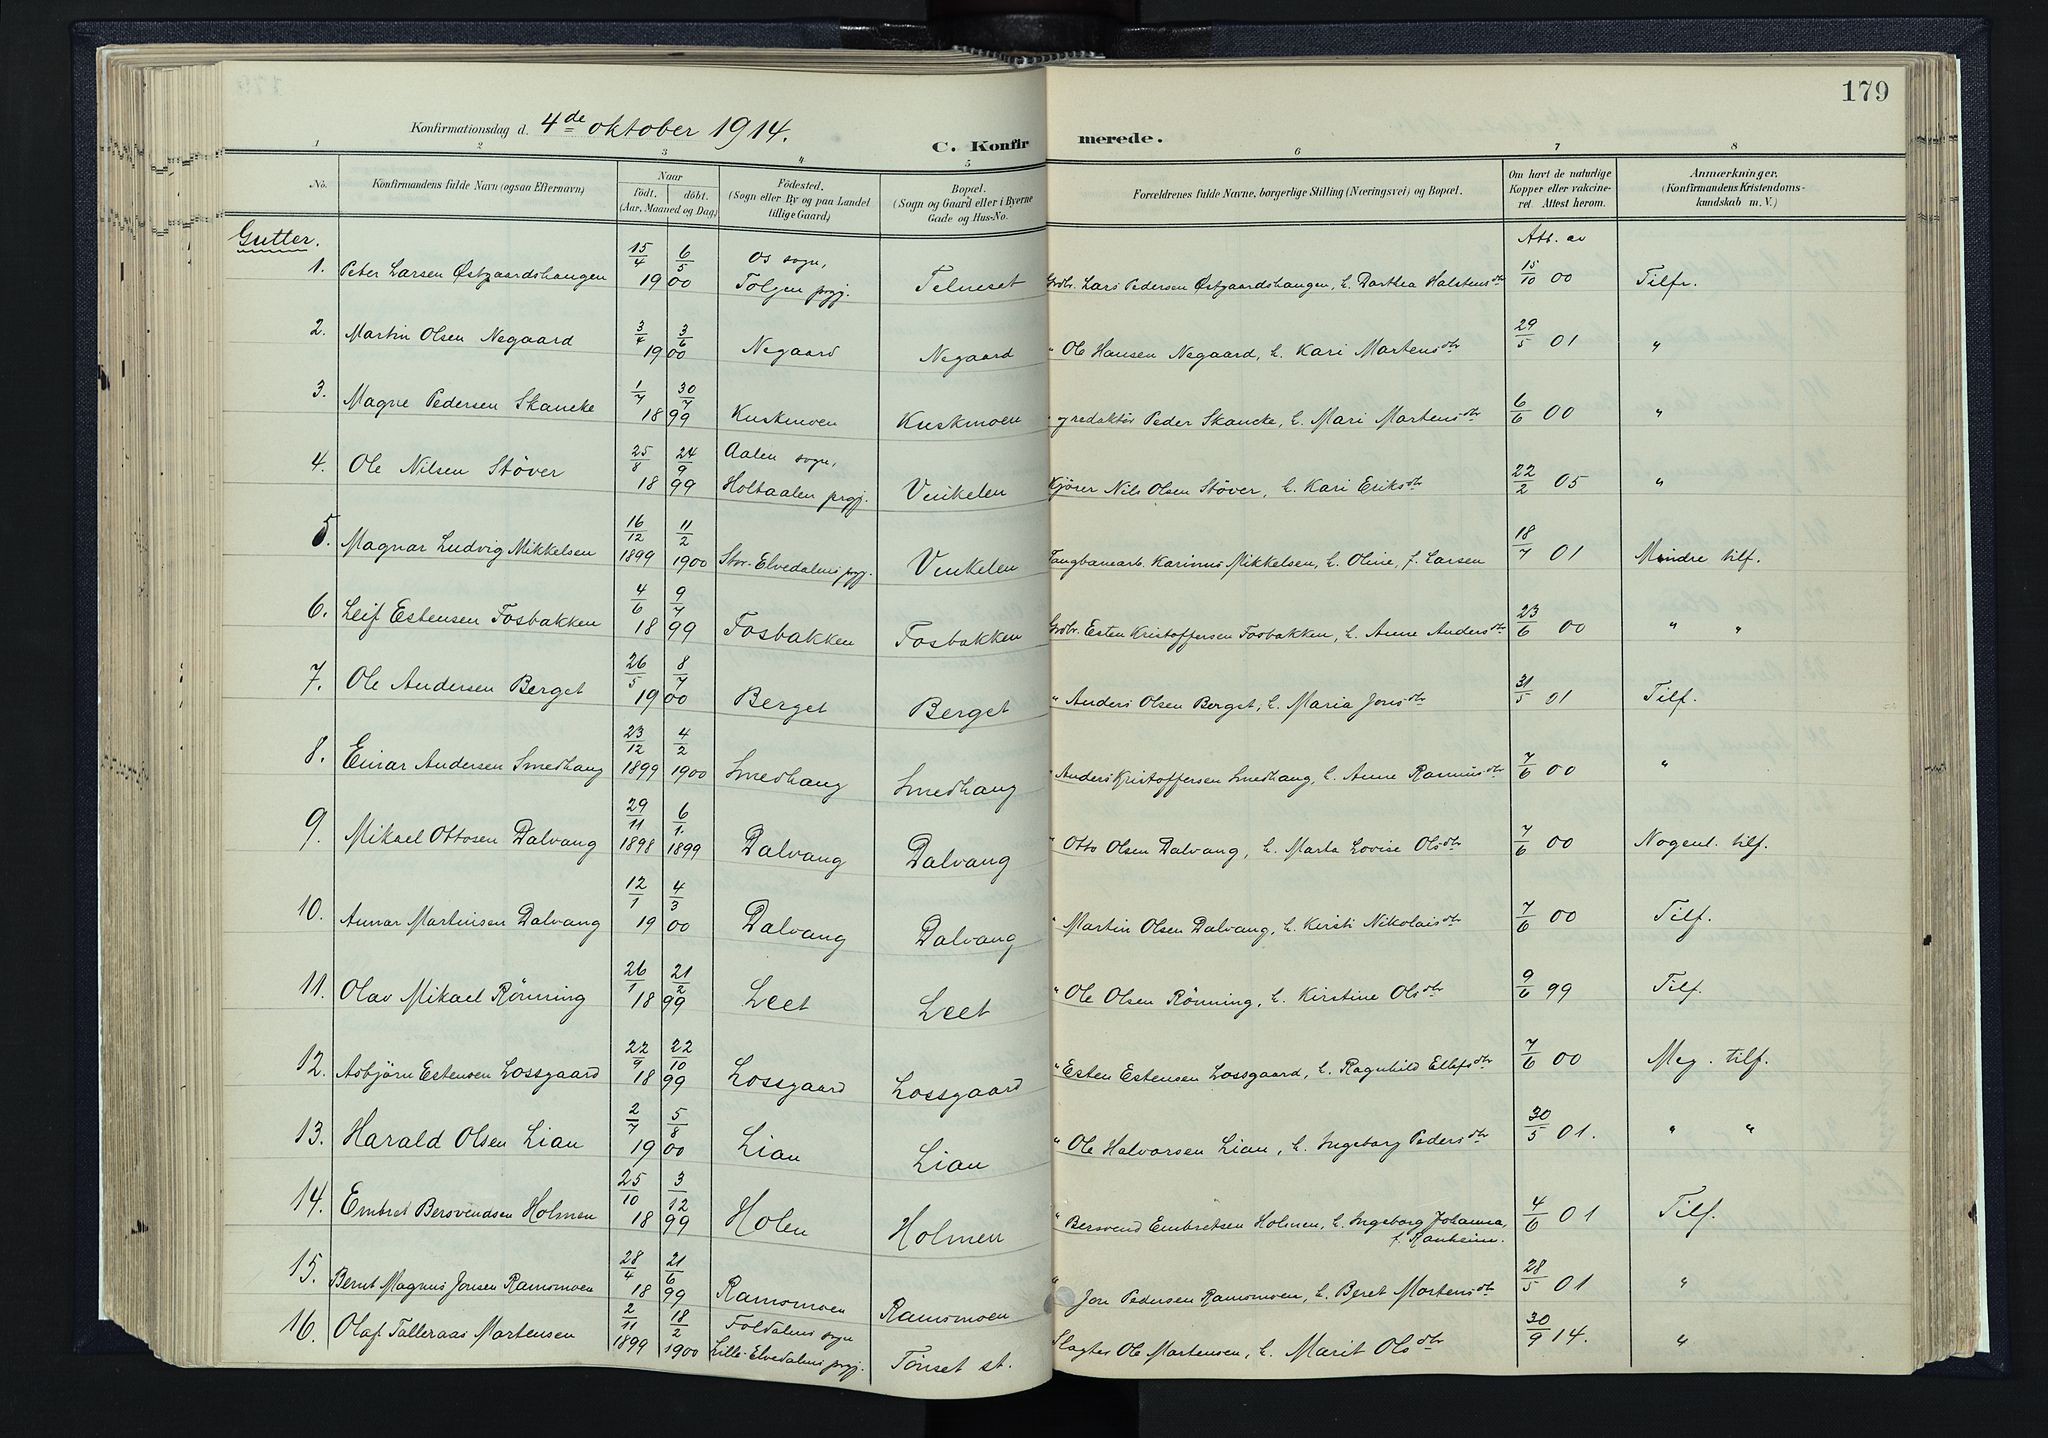 179
Konfirmationsdag d. 4de oktober 1914.
C. Konfirmerede.
1 2 3 4 5 6 7 8
No.
Konfirmandens fulde Navn (ogsaa Efternavn)
Naar
födt. döbt.
(Aar, Maaned og Dag)
Födested.
(Sogn eller By og paa Landet
tillige Gaard)
Bopæl.
(Sogn og Gaard eller i Byerne
Gade og Hus-No.
Forældrenes fulde Navne, borgerlige Stilling (Næringsvei) og Bopæl.
Om havt de naturlige
Kopper eller vakcine-
ret. Attest herom.
Anmærkninger.
(Konfirmandens Kristendoms-
kundskab m. V.)
Gutter.
Att. av
1. Peter Larsen Østgaardshaugen 15/4 6/5 1900 Os sogn, Tolgen prgj. Telneset Grdbr. Lars Pedersen Østgaardshaugen, h. Darthea Halstensdtr 15/10 00 Tilfr.
2. Martin Olsen Negaard 3/4 3/6 1900 Negaard Negaard " Ole Hansen Negaard, h. Kari Martensdtr 29/5 01 "
3. Magne Pedersen Skancke 1/7 30/7 1899 Kuskmoen Kuskmoen " og redaktör Peder Skancke, h. Mari Martensdtr 6/6 00 "
4. Ole Nilsen Stöver 25/8 24/9 1899 Aalen sogn, Holtaalen prgj. Vinkelen Kjörer Nils Olsen Stöver, h. Kari Eriksdtr 22/2 05 "
5. Magnar Ludvig Mikkelsen 16/12 1899 11/2 1900 Stor-Elvedalens prgj. Vinkelen Taugbanearb. Karinus Mikkelsen, h. Oline, f. Larsen 18/7 01 Mindre tilf.
6. Leif Estensen Fosbakken 4/6 9/7 1899 Fosbakken Fosbakken Grdbr. Esten Kristoffersen Fosbakken, h. Anne Andersdtr 23/6 00 " "
7. Ole Andersen Berget 26/5 8/7 1900 Berget Berget " Anders Olsen Berget, h. Maria Jonsdtr 31/5 01 Tilf.
8. Einar Andersen Smedhaug 23/12 1899 4/2 1900 Smedhaug Smedhaug " Anders Kristoffersen Smedhaug, h. Anne Rasmusdtr 7/6 00 "
9. Mikael Ottosen Dalvang 29/11 1898 6/1. 1899 Dalvang Dalvang " Otto Olsen Dalvang, h. Marta Lovise Olsdtr 7/6 00 Nogenl. tilf.
10. Annar Martinsen Dalvang 12/1 4/3 1900 Dalvang Dalvang " Martin Olsen Dalvang, h. Kirsti Nikolaisdtr 7/6 00 Tilf.
11. Olav Mikael Rönning 26/1 21/2 1899 Leet Leet " Ole Olsen Rönning, h. Kirstine Olsdtr 9/6 99 Tilf.
12. Asbjörn Estensen Lossgaard 22/9 22/10 1899 Lossgaard Lossgaard " Esten Estensen Lossgaard, h. Ragnhild Ellefsdtr 7/6 00 Meg. tilf.
13. Harald Olsen Lian 2/7 5/8 1900 Lian Lian " Ole Halvorsen Lian, h. Ingeborg Pedersdtr 30/5 01. " "
14. Embret Bersvendsen Holmen 25/10 3/12 1899 Holen Holmen " Bersvend Embretsen Holmen, h. Ingeborg Johanna, f. Ranheim. 4/6 01 Tilf.
15. Bernt Magnus Jonsen Ramsmoen 28/4 21/6 1899 Ramsmoen Ramsmoen " Jon Pedersen Ramsmoen, h. Beret Mortensdtr 28/5 01 "
16. Olaf Talleraas Martensen 2/11 1899 18/2 1900 Foldalens sogn Lille-Elvedalens prgj. Tönset st. Slagter Ole Martensen, h. Marit Olsdtr 30/9 14. "